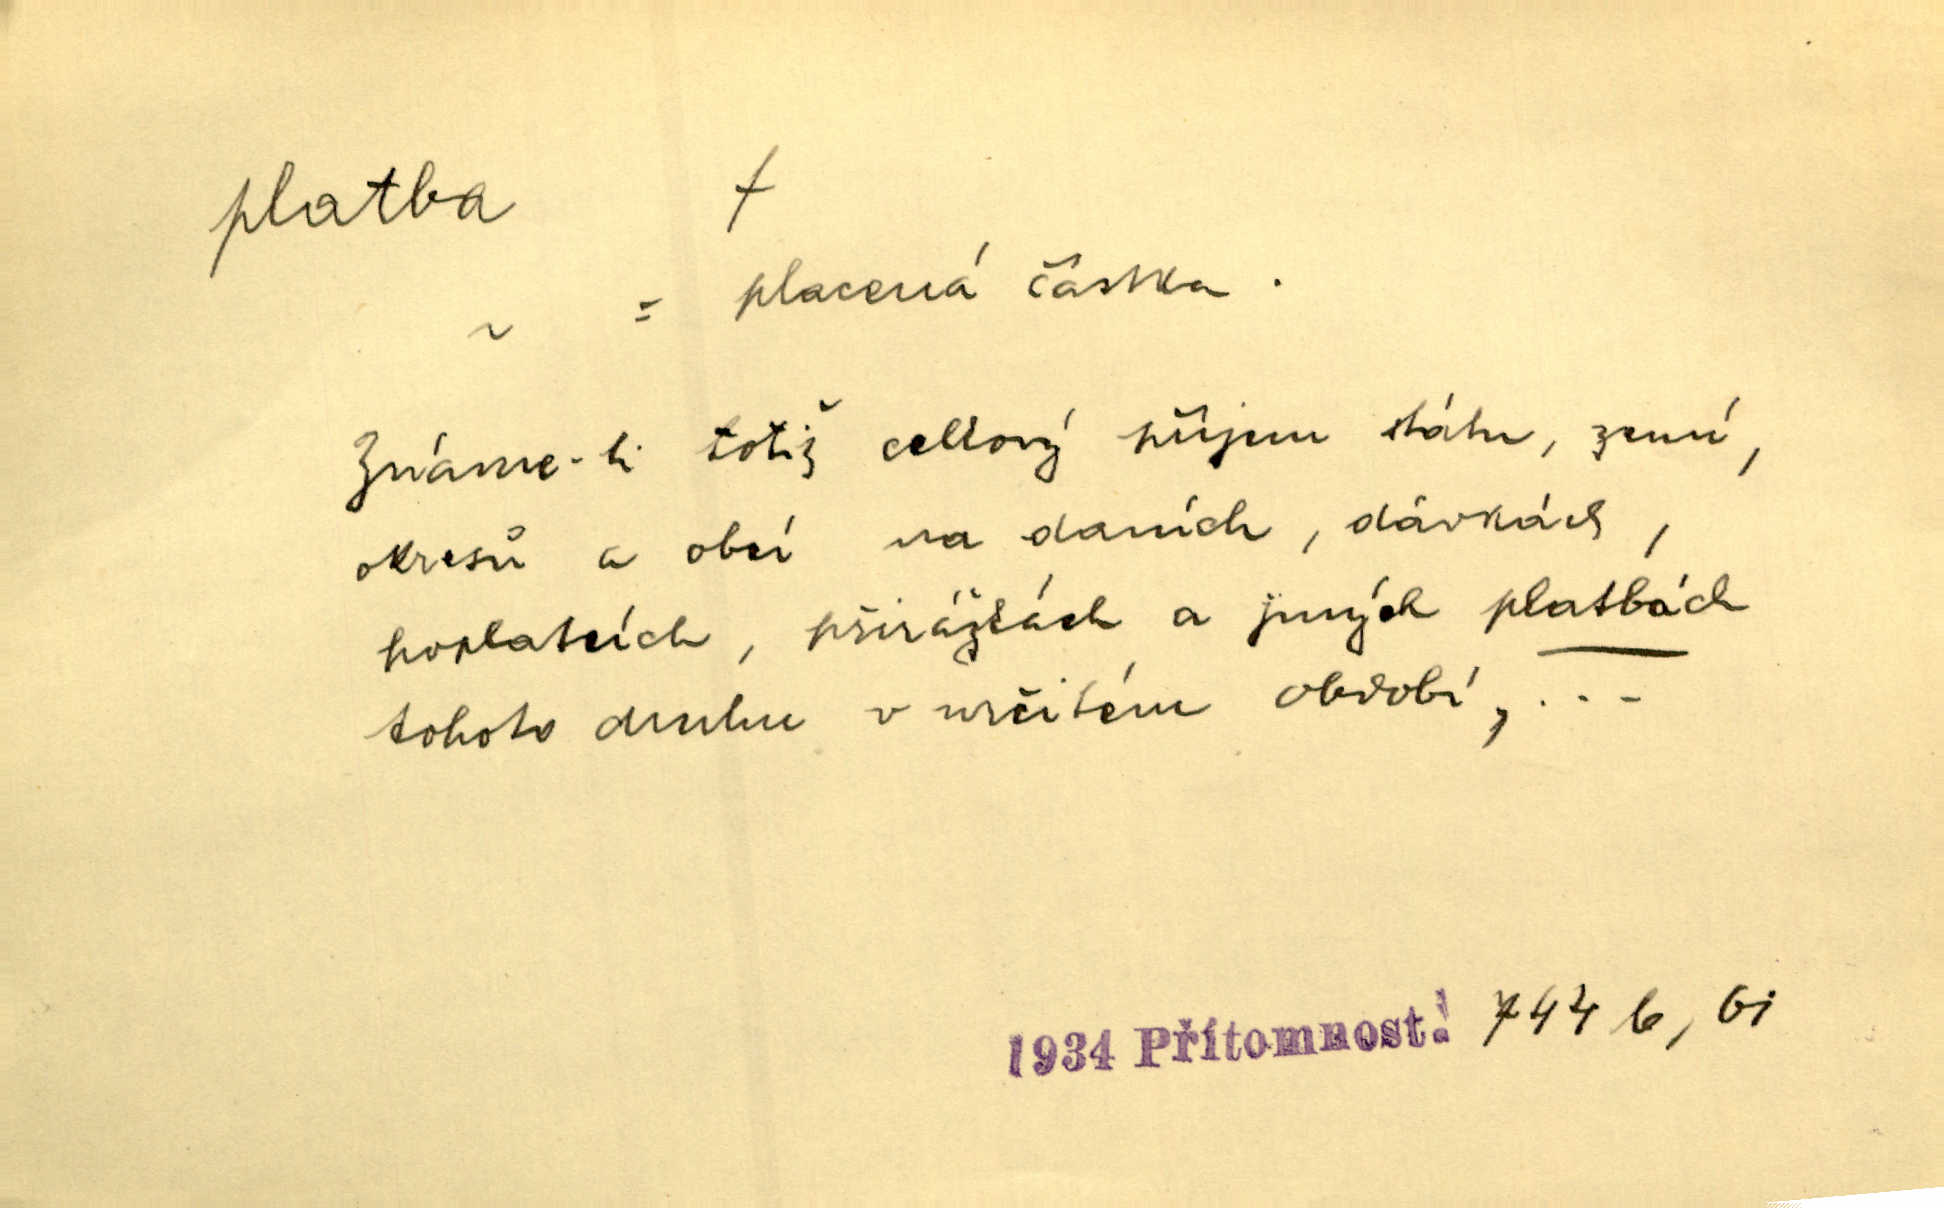 platba f
~ = placená částka .
Známe-li totiž celkový příjem státu, zemí,
okresů a obcí na daních, dávkách,
poplatcích, přirážkách a jiných platbách
tohoto druhu v určitém období, . . .
1934 Přítomnost. 744 b, 6i